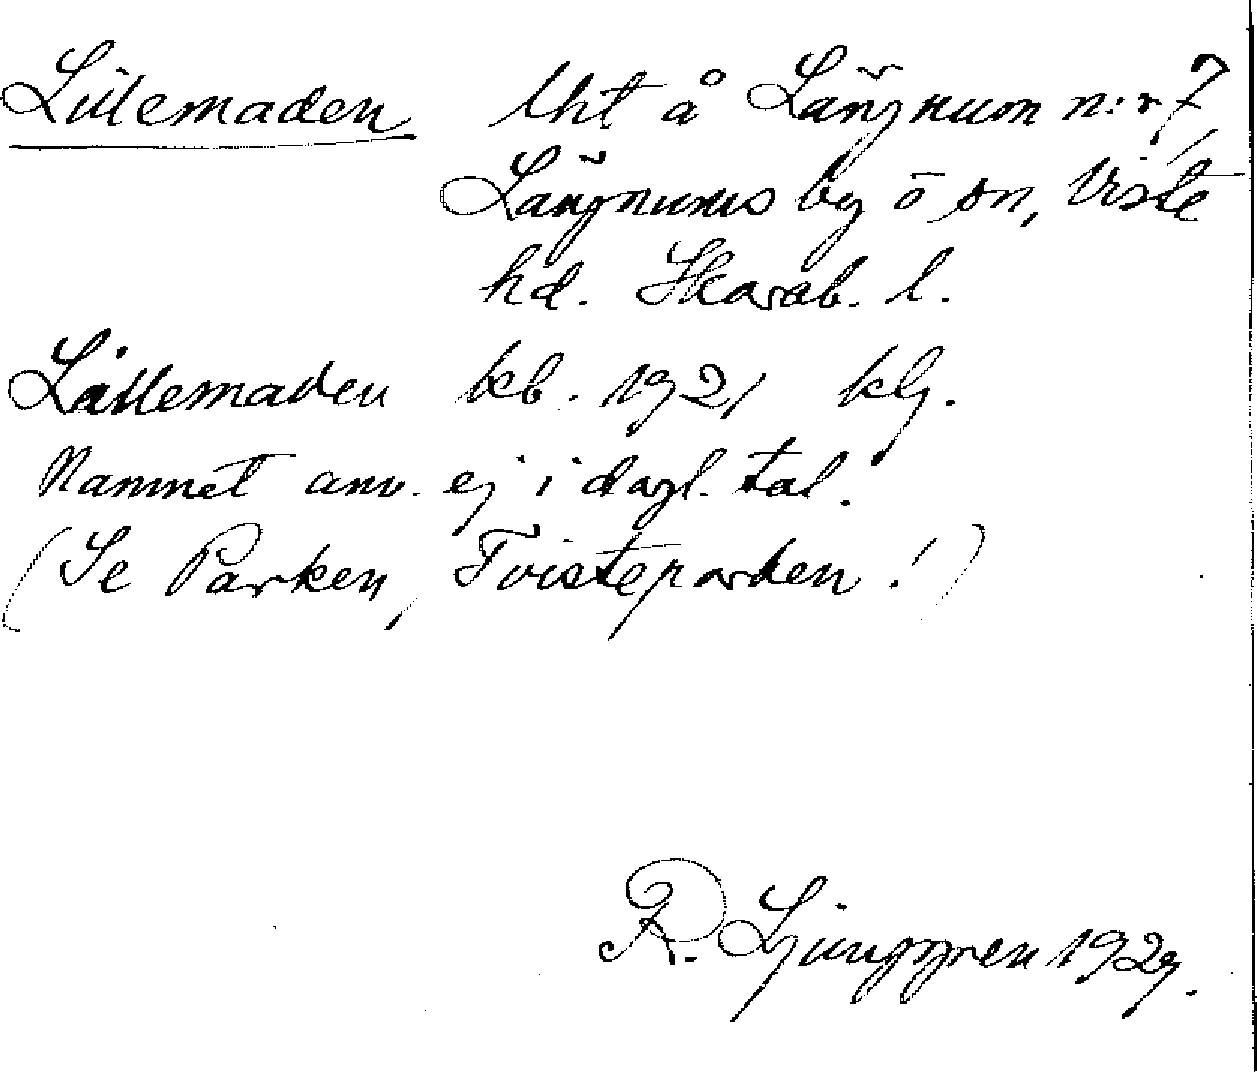 Lillemaden lht å Längnum n:r 7,
Längnums by o sn, Viste
hd. Skarab. l.
Lillemaden kb. 1921 klg.
Namnet anv. ej i dagl. tal.
(Se Parken, Tvisteparden!)
R. Ljunggren 1929.